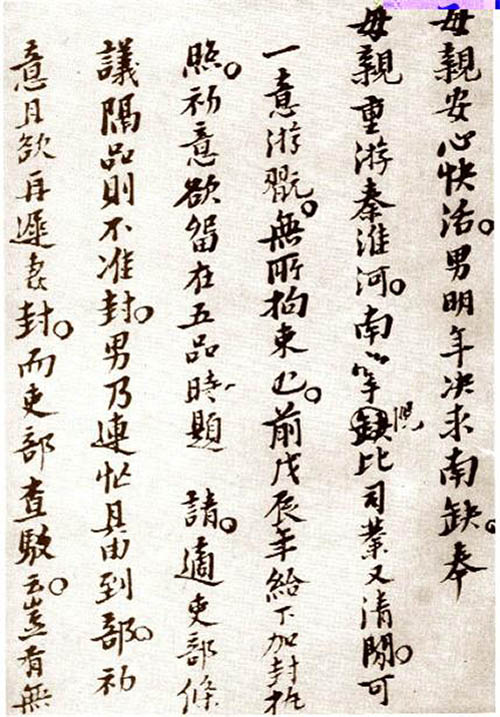 母親安心快活。男明年决求南缺。奉
母親重游秦淮河。南掌缺況比司業又清閒。可
一意游翫。無所拘束也。前戊辰年給下加封执
照。初意欲留在五品時題 請。適吏部條
議隔品則不准封。男乃連忙具由到部。初
意且欲再遲去封。而吏部查駁云。豈有無